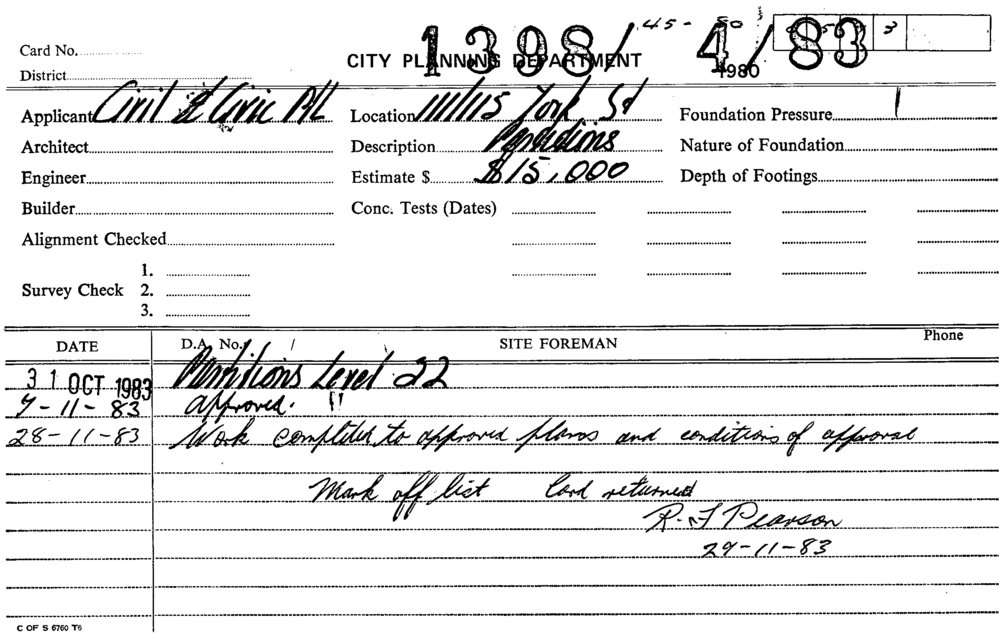 45-80 3
1398/ 4/83
Card No.
CITY PLANNING DEPARTMENT 1980
District
Applicant Civil & Civic P/L Location 111/115 York St Foundation Pressure
Architect Description Partitions Nature of Foundation
Engineer Estimate $ $15,000 Depth of Footings
Builder Conc. Tests (Dates)
Alignment Checked
1.
Survey Check 2.
3.
DATE D.A. No. SITE FOREMAN Phone
31 OCT 1983 Partitions Level 22
7-11-83 approved. "
28-11-83 Work completed to approved plans and conditions of approval
Mark off list Card returned
R. J Pearson
29-11-83
C OF S 6760 T6